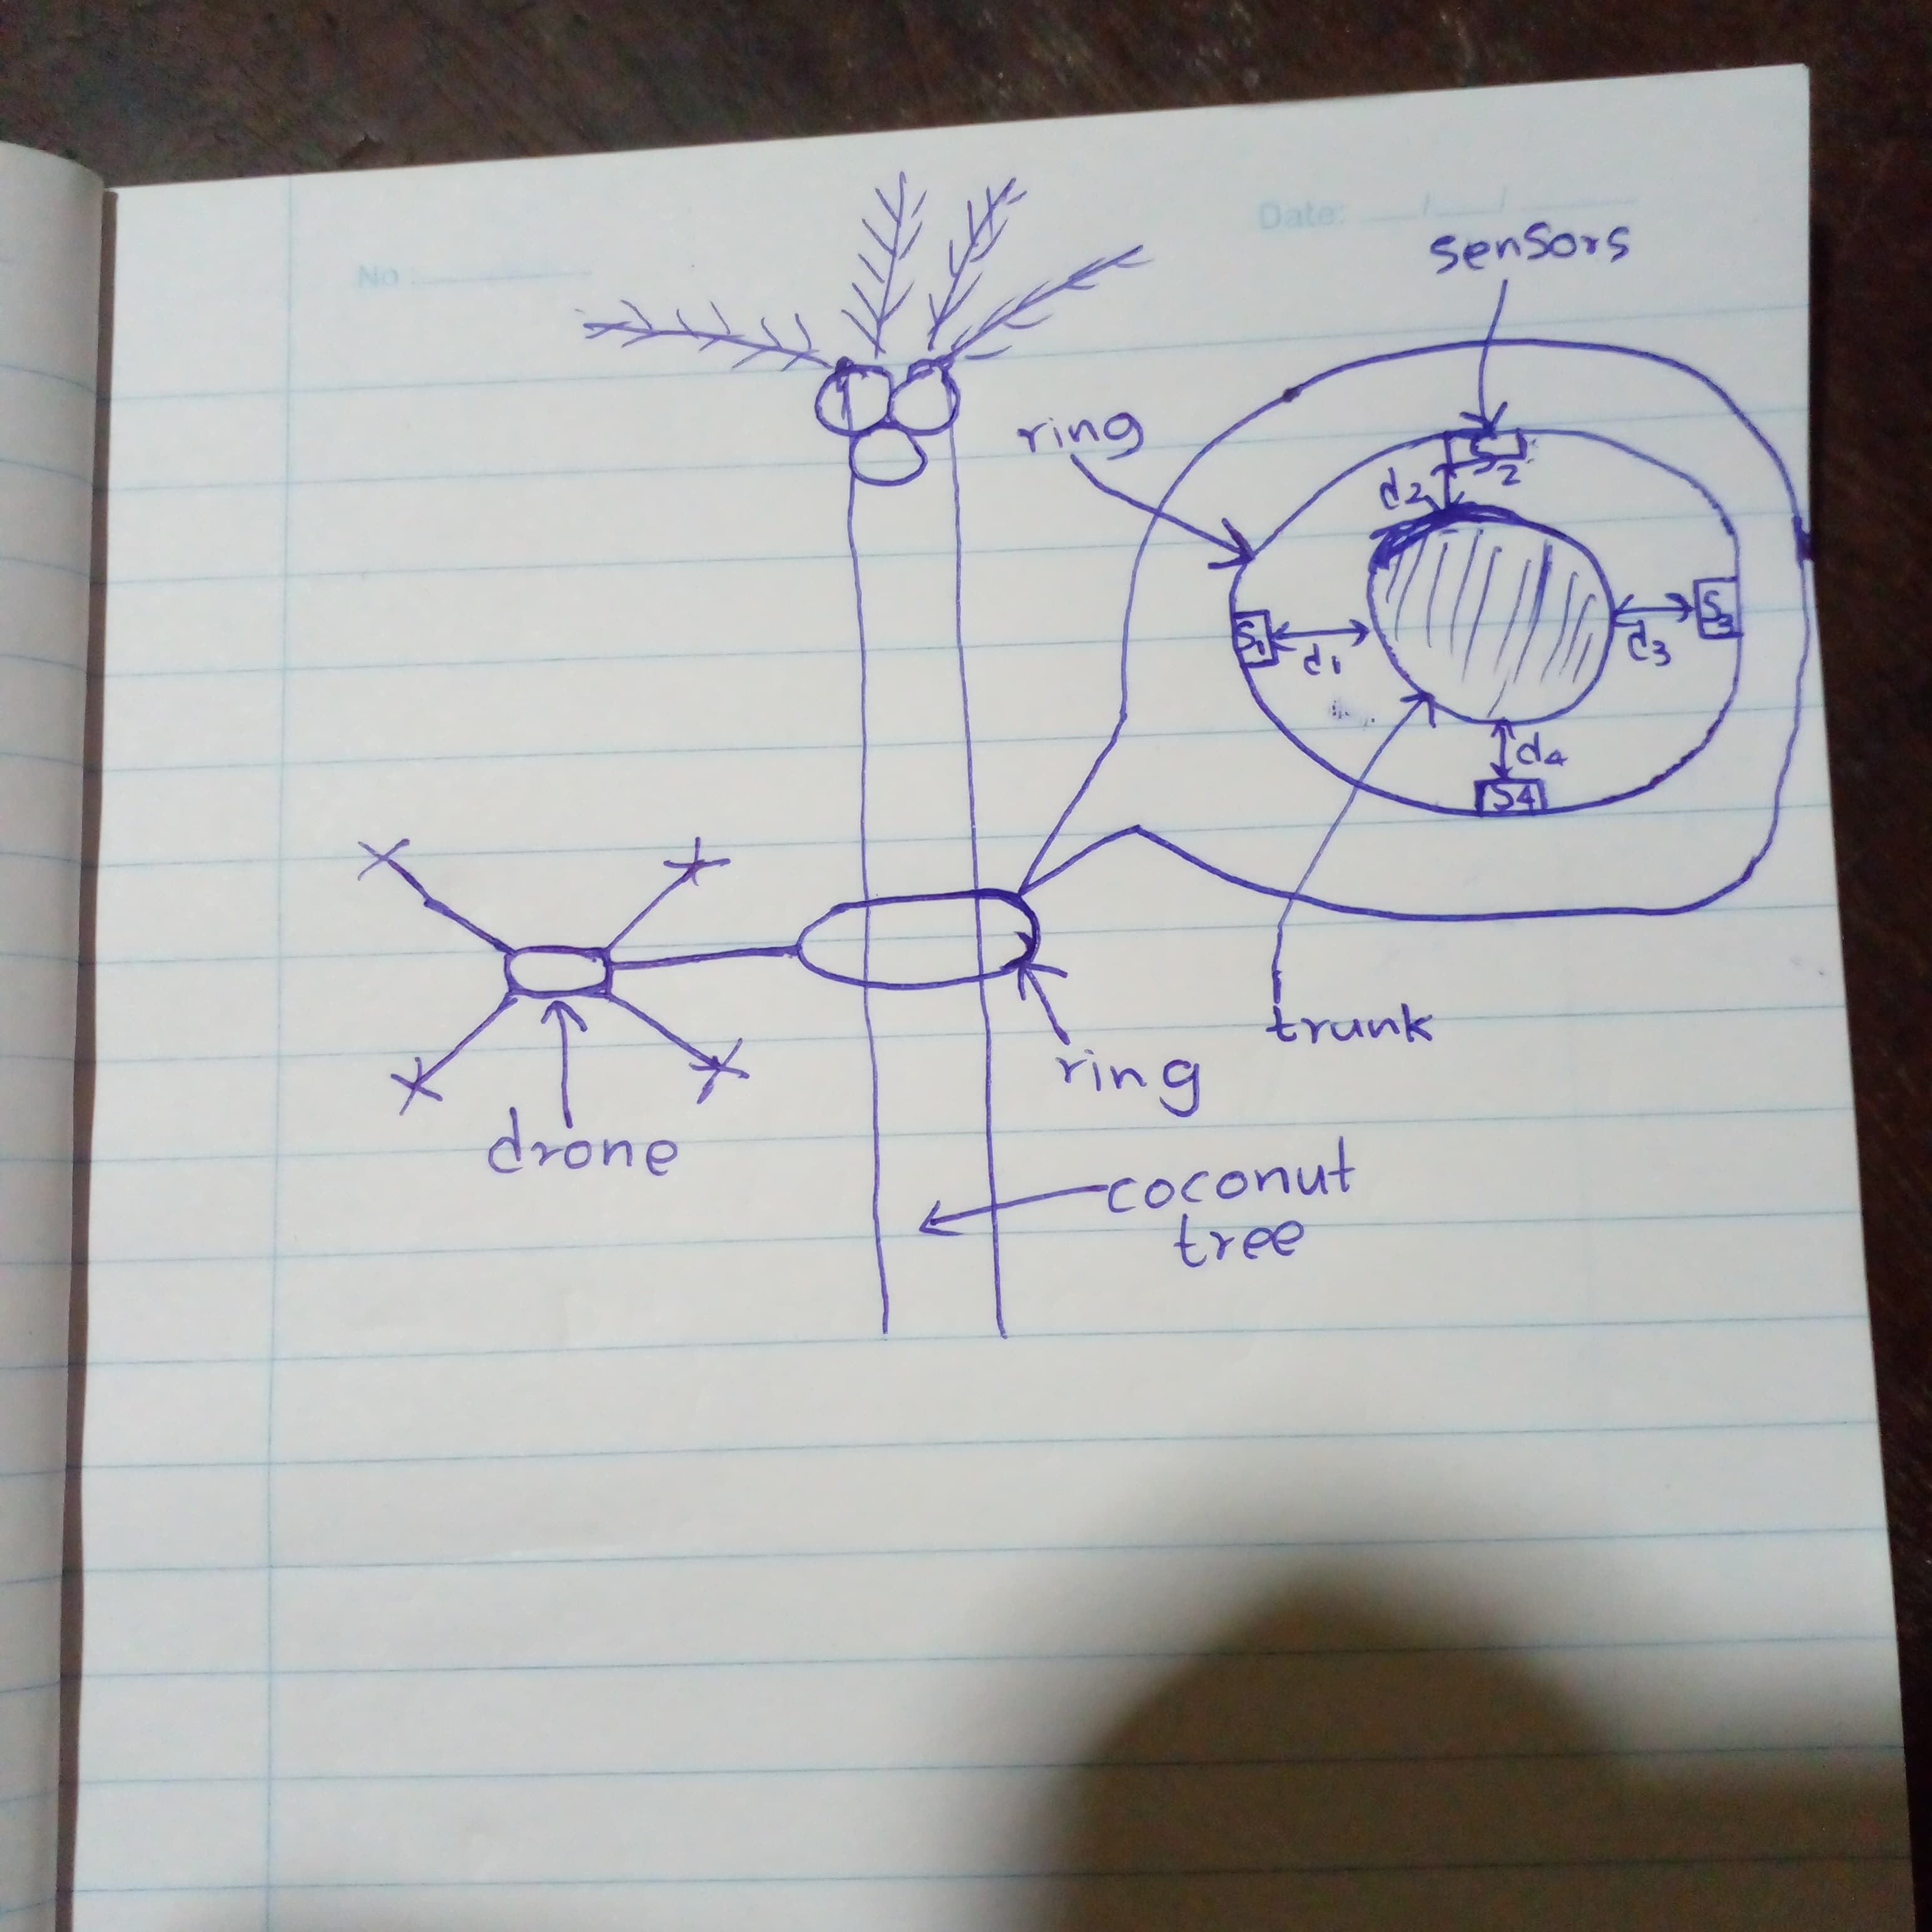 No
Date: / /
sensors
ring
S2
d2
S1
d1
S3
d3
d4
S4
trunk
ring
drone
coconut
tree